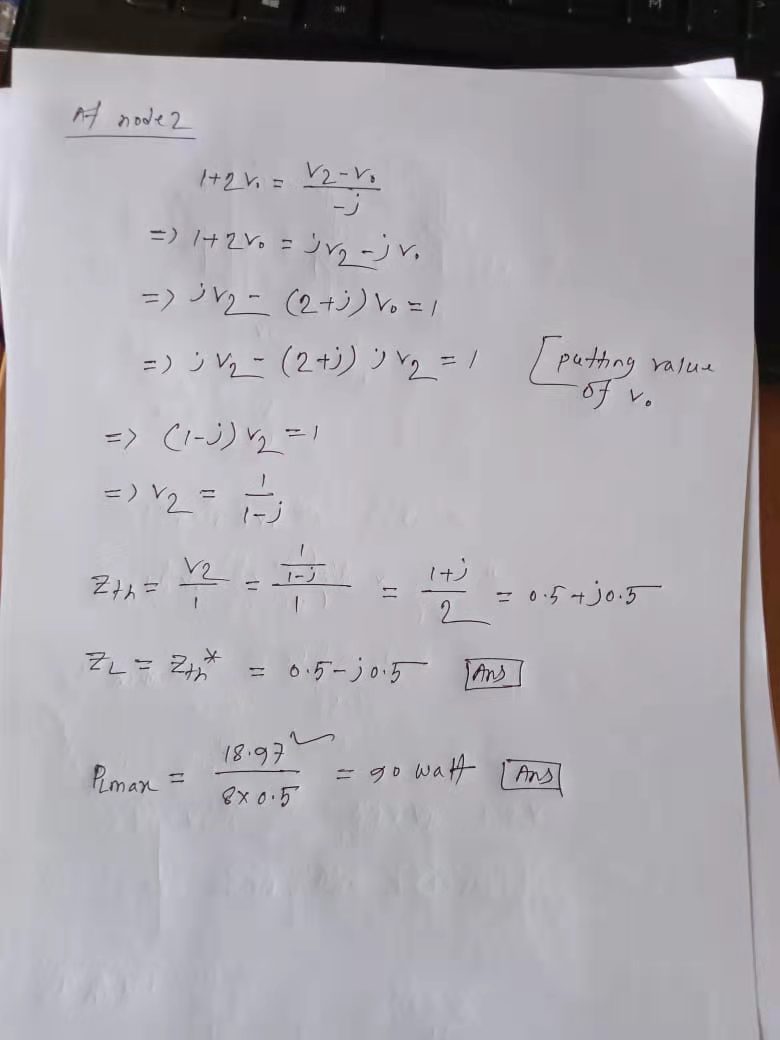 At node 2
1+2V₀ = (V2-V₀)/(-j)
=) 1+2V₀ = jV2-jV₀
=) jV2- (2+j)V₀ = 1
=) jV2-(2+j) jV2 = 1 [putting value of V₀
=) (1-j)V2 = 1
=) V2 = 1/(1-j)
Zth = V2/1 = (1/(1-j))/1 = (1+j)/2 = 0.5+j0.5
ZL = Zth* = 0.5-j0.5 [Ans]
PLmax = 18.97²/(8×0.5) = 90 watt [Ans]